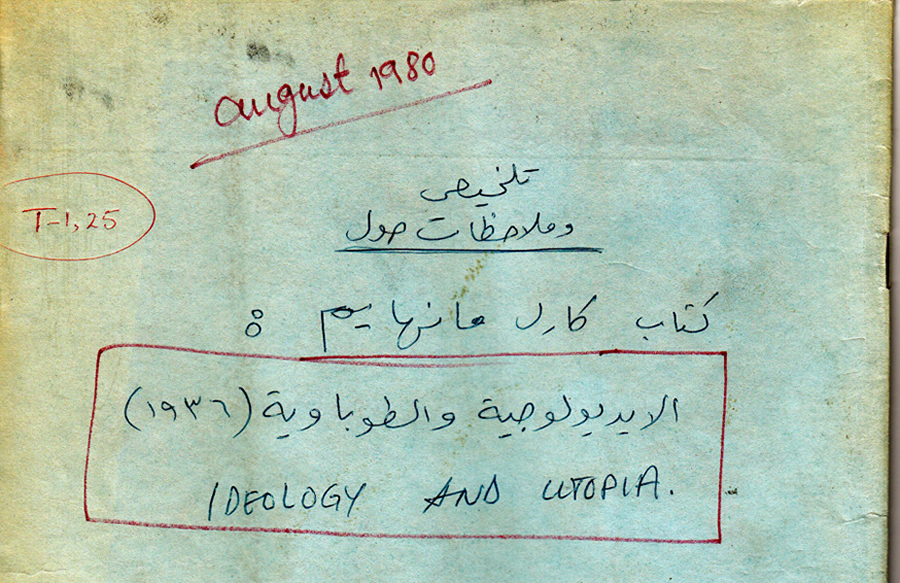 august 1980
T-1,25
تلخيص
وملاحظات حول
كتاب كارل مانهايم :
الايديولوجية والطوباوية (١٩٣٦)
IDEOLOGY AND UTOPIA.